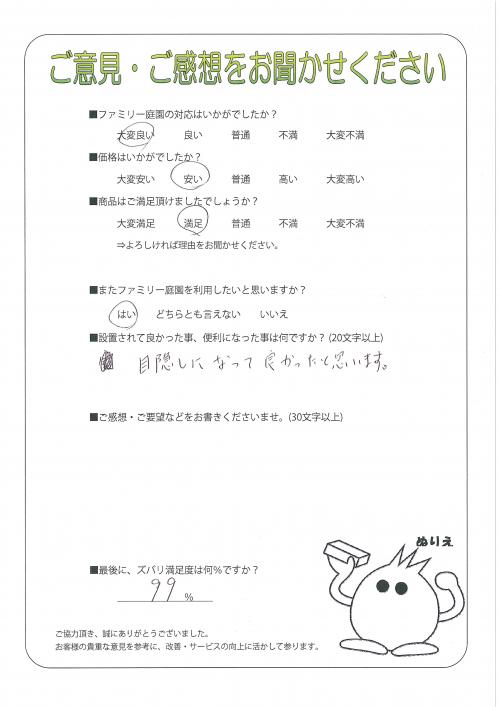 ご意見・ご感想をお聞かせください
■ファミリー庭園の対応はいかがでしたか？
大変良い 良い 普通 不満 大変不満
■価格はいかがでしたか？
大変安い 安い 普通 高い 大変高い
■商品はご満足頂けましたでしょうか？
大変満足 満足 普通 不満 大変不満
⇒よろしければ理由をお聞かせください。
■またファミリー庭園を利用したいと思いますか？
はい どちらとも言えない いいえ
■設置されて良かった事、便利になった事は何ですか？(20文字以上)
目隠しになって良かったと思います。
■ご感想・ご要望などをお書きくださいませ。(30文字以上)
ぬりえ
■最後に、ズバリ満足度は何％ですか？
99 %
ご協力頂き、誠にありがとうございました。
お客様の貴重な意見を参考に、改善・サービスの向上に活かして参ります。